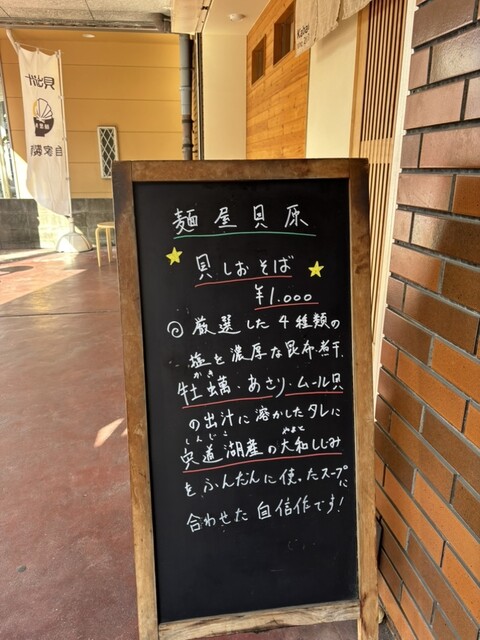 麺屋貝原
貝しおそば
¥1.000
◎厳選した4種類の
塩を濃厚な昆布煮干
かき
牡蠣・あさり・ムール貝
の出汁に溶かしたタレに
しんじこ やまと
宍道湖産の大和しじみ
をふんだんに使ったスープに
合わせた自信作です!